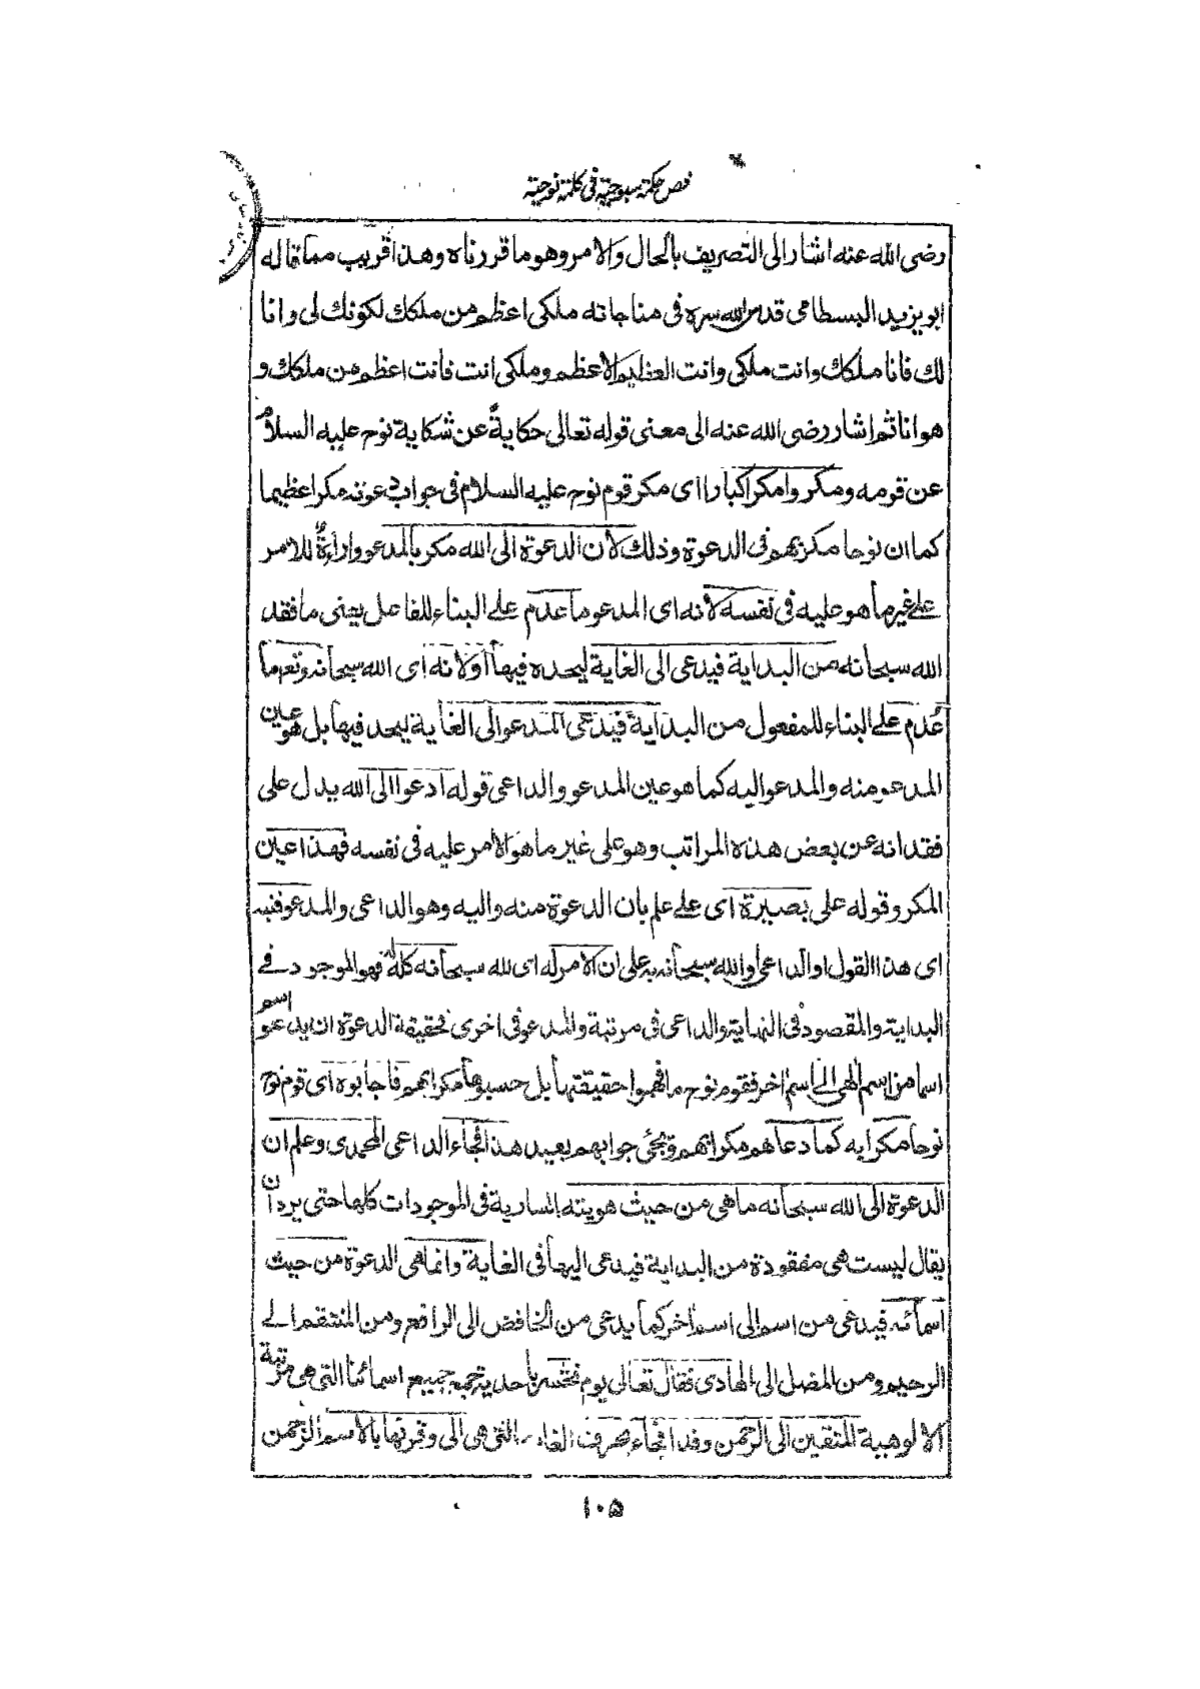 فص حكمة سبوحية فى كلمة نوحية
رضى الله عنه اشار الى التصريف بالحال والامر وهو ما قررناه وهذا قريب مما قاله
ابو يزيد البسطامى قدس الله سره فى مناجاته ملكى اعظم من ملكك لكونك لى وانا
لك فانا ملكك وانت ملكى وانت العظيم الاعظم وملكى انت فانت اعظم من ملكك و
هو انا ثم اشار رضى الله عنه الى معنى قوله تعالى حكايةً عن شكاية نوح عليه السلام
عن قومه ومكروا مكرا كبارا اى مكر قوم نوح عليه السلام فى جواب دعوته مكرا عظيما
كما ان نوحا مكر بهم فى الدعوة وذلك لان الدعوة الى الله مكر بالمدعو واراءةٌ للامر
على غير ما هو عليه فى نفسه لانه اى المدعو ما عدم على البناء للفاعل يعنى ما فقد
الله سبحانه من البداية فيدعى الى الغاية ليجده فيها أولانه اى الله سبحانه وتعم ما
عُدم على البناء للمفعول من البداية فيدعى المدعو الى الغاية ليجد فيها بل هو عين
المدعو منه والمدعو اليه كما هو عين المدعو والداعى قوله ادعوا الى الله يدل على
فقدانه عن بعض هذه المراتب وهو على غير ما هو الامر عليه فى نفسه فهذا عين
المكر وقوله على بصيرة اى على علم بان الدعوة منه واليه وهو الداعى والمدعو فنبه
اى هذا القول او الداعى او الله سبحانه به على ان الامر له اى لله سبحانه كله فهو الموجود فى
البداية والمقصود فى النهاية والداعى فى مرتبة والمدعو فى اخرى فحقيقة الدعوة ان يدعو اسم
اسما من اسم الهى الى اسم اخر فقوم نوح ما فهموا حقيقتها بل حسبوها مكرا بهم فاجابوه اى قوم نوح
نوحا مكرا به كما دعاهم مكرا بهم ويجئ جوابهم بعيد هذا فجاء الداعى المحمدى وعلم ان
الدعوة الى الله سبحانه ما هى من حيث هويته السارية فى الموجودات كلها حتى يرد ان
يقال ليست هى مفقودة من البداية فيدعى اليها فى الغاية وانما هى الدعوة من حيث
اسمائه فيدعى من اسم الى اسم اخر كما يدعى من الخافض الى الرافع ومن المنتقم الى
الرحيم ومن المضل الى الهادى فقال تعالى يوم نحشر باحدية جمع جميع اسمائنا التى هى مرتبة
الالوهية المتقين الى الرحمن وفدا فجاء بحرف الغاية التى هى الى وقرنها بالاسم الرحمن
١٠٥